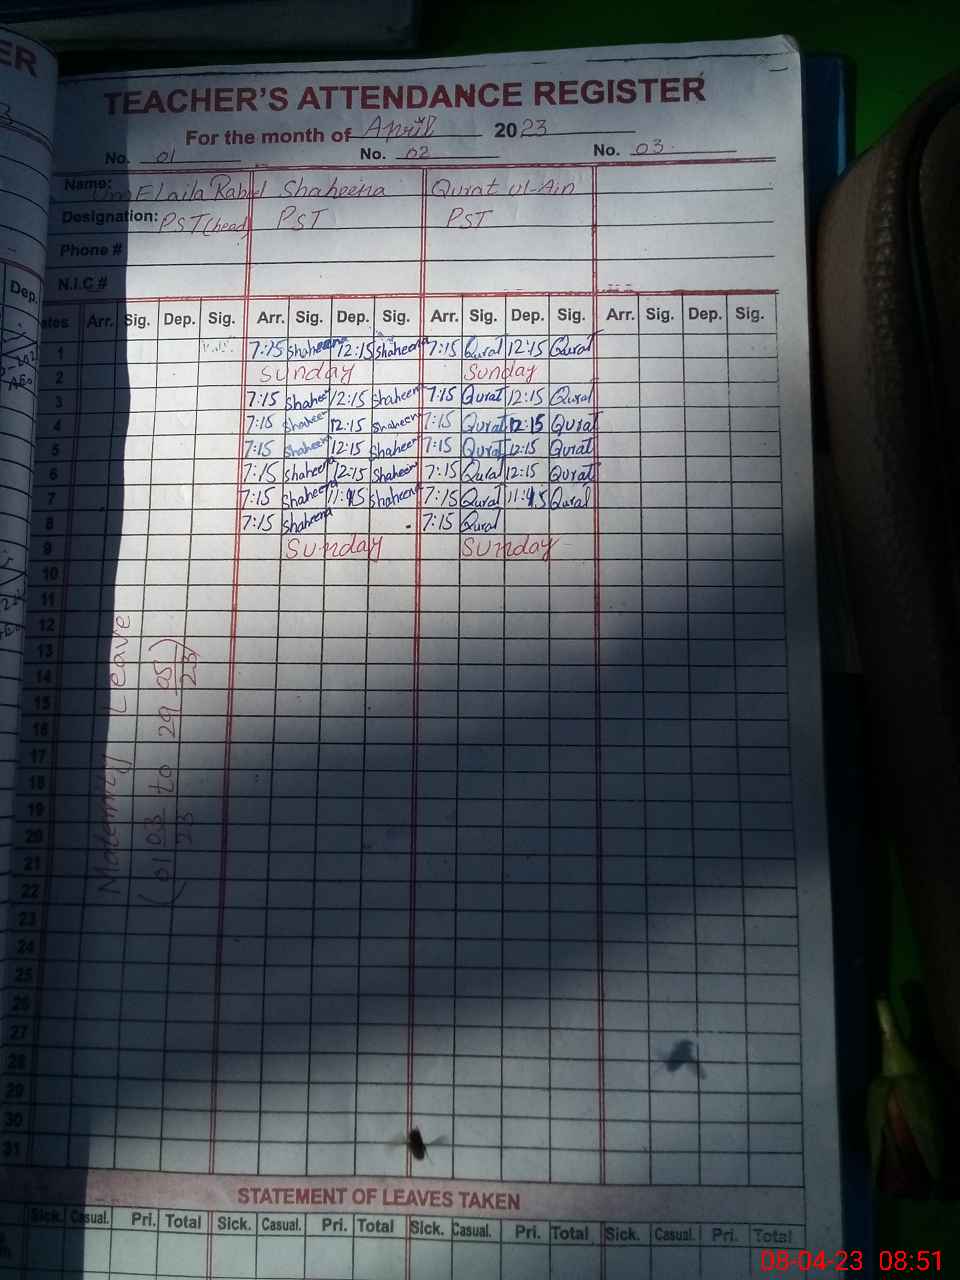 ER
TEACHER'S ATTENDANCE REGISTER
For the month of April 2023
No. 01 No. 02 No. 03
Name: Shaheena Qurat ul-Ain
Designation: PST (head) PST PST
Phone #
N.I.C #
Dep.
Arr. Sig. Dep. Sig. Arr. Sig. Dep. Sig. Arr. Sig. Dep. Sig. Arr. Sig. Dep. Sig.
1 7:15 Shaheena 12:15 Shaheena 7:15 Qurat 12:15 Qurat
2 Sunday Sunday
3 7:15 Shaheen 12:15 Shaheen 7:15 Qurat 12:15 Qurat
4 7:15 Shaheen 12:15 Shaheen 7:15 Qurat 12:15 Qurat
5 7:15 Shaheen 12:15 Shaheen 7:15 Qurat 12:15 Qurat
6 7:15 Shaheena 12:15 Shaheen 7:15 Qurat 12:15 Qurat
7 7:15 Shaheena 11:45 Shaheena 7:15 Qurat 11:45 Qurat
8 7:15 Shaheena 7:15 Qurat
9 Sunday Sunday
10
11
12
13
14
15
16
17
18
19
20
21
22
23
24
25
26
27
28
29
30
31
Maternity Leave
(01 03 23 to 29 05 23)
STATEMENT OF LEAVES TAKEN
Sick. Casual. Pri. Total Sick. Casual. Pri. Total Sick. Casual. Pri. Total Sick. Casual. Pri. Total
08-04-23 08:51